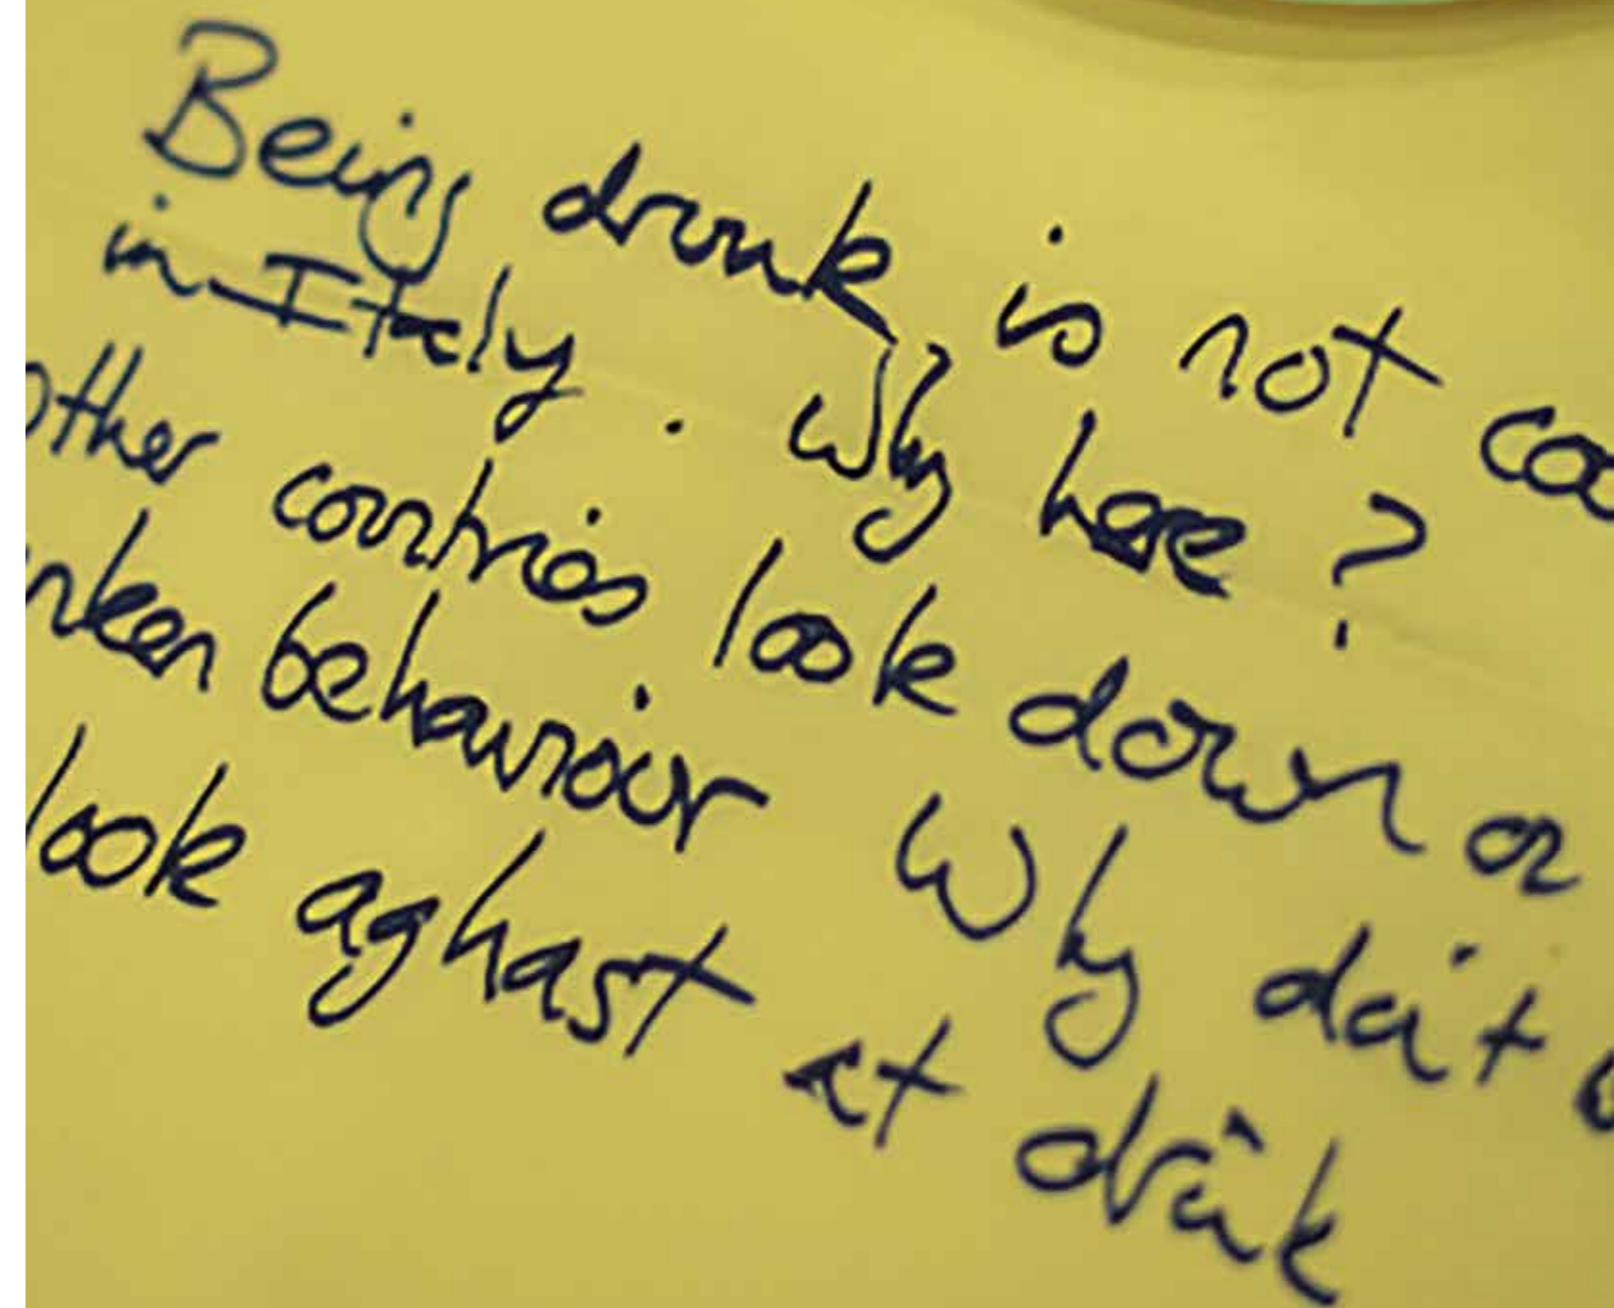 Being drunk is not coo
in Italy. Why here?
other countries look down on
nken behaviour Why don't
look aghast at drink